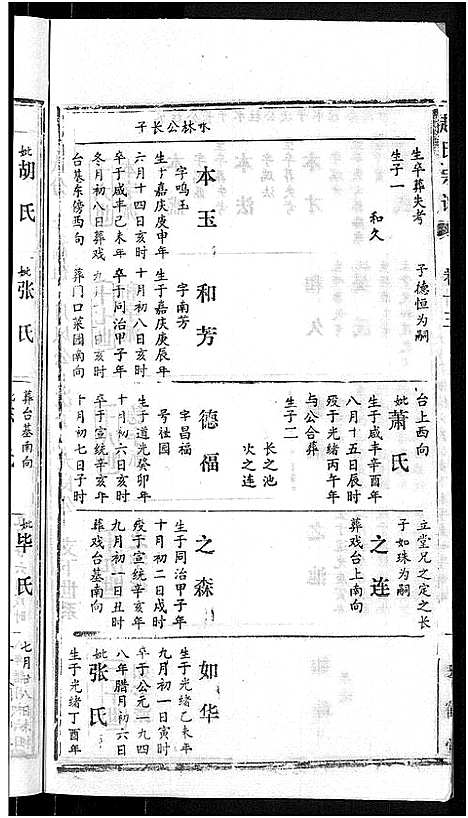 赵氏宗谱
卷十三
生卒葬失考
生子一
和久
子德恒为嗣
水林公长子
本玉
字鸣玉
生于嘉庆庚申年
六月十四日亥时
卒于咸丰己未年
冬月初八日葬戏
台基东傍西向
妣胡氏
和芳
字南芳
生于嘉庆庚辰年
十月初八日亥时
卒于同治甲子年
葬门口菜园南向
妣张氏
葬台基南向
台上西向
妣萧氏
生于咸丰辛酉年
八月十五日辰时
殁于光绪丙午年
与公合葬
生子二
长之池
次之连
德福
字昌福
号社园
生于道光癸卯年
十月初六日亥时
卒于宣统辛亥年
十月初七日子时
立堂兄之定之长
子如珠为嗣
之连
葬戏台上南向
之森
生于同治甲子年
十月初二日戌时
殁于宣统辛亥年
九月初一日丑时
葬戏台基南向
妣毕氏
如华
生于光绪乙未年
九月初一日寅时
卒于公元一九四
八年腊月初六日
妣张氏
生于光绪丁酉年